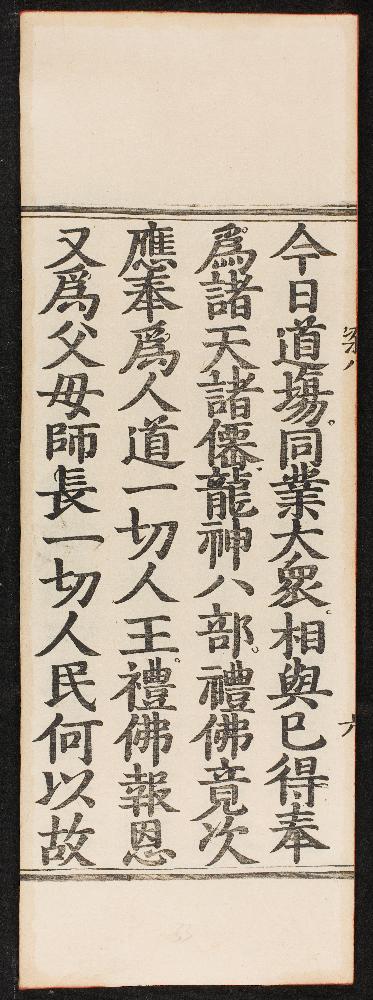 今日道場。同業大衆。相與已得奉
爲諸天諸僊。龍神八部。禮佛竟次
應奉爲人道一切人王。禮佛報恩
又爲父母師長一切人民何以故
六